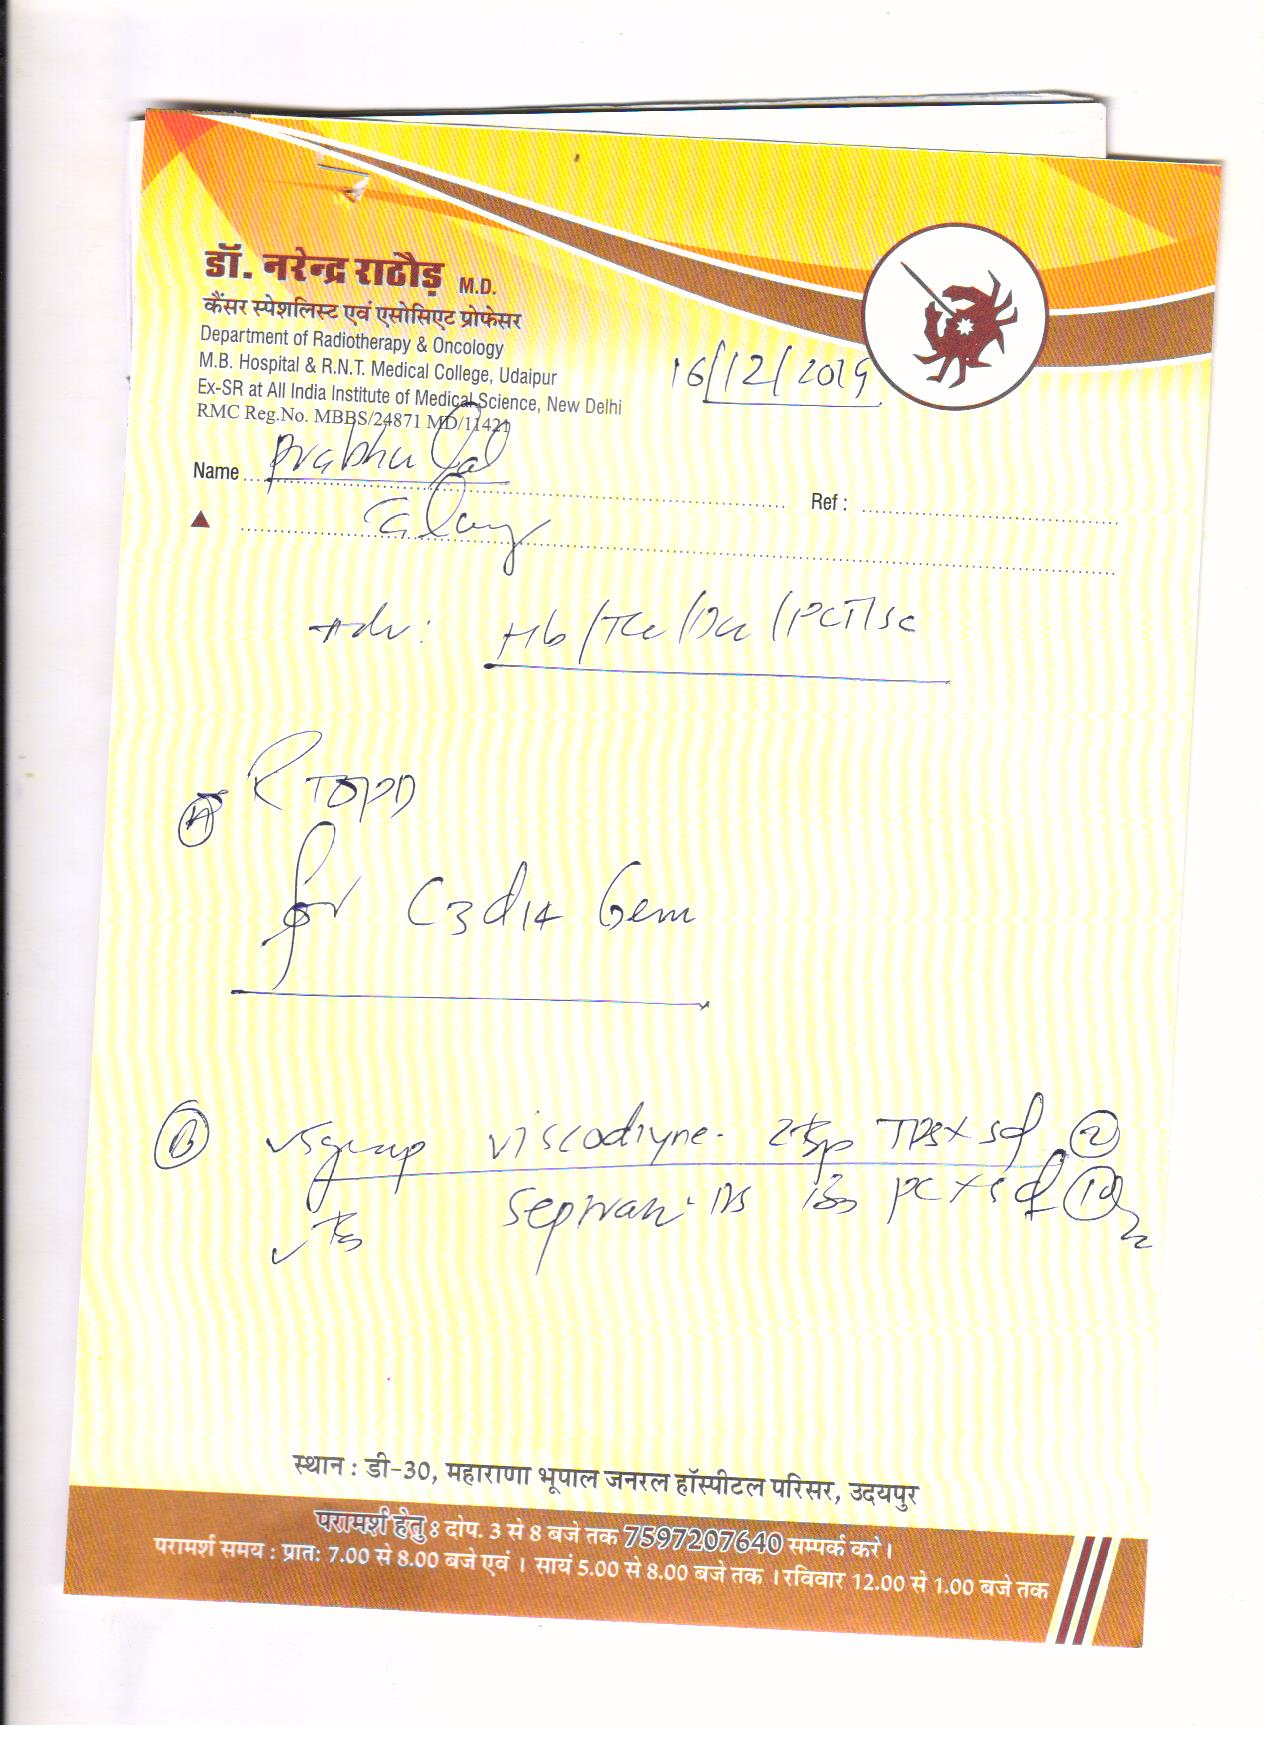 डॉ. नरेन्द्र राठौड़ M.D.
कैंसर स्पेशलिस्ट एवं एसोसिएट प्रोफेसर
Department of Radiotherapy & Oncology
M.B. Hospital & R.N.T. Medical College, Udaipur
Ex-SR at All India Institute of Medical Science, New Delhi
RMC Reg.No. MBBS/24871 MD/11421
16/12/2019
Name Prabhu Lal Ref :
Adv: Hb/TLC/DLC/PCT/SC
A RTOPD
for C3d14 Gem
B Syrup viscodyne 2tsp TDS x 5d 2
Septran DS PC x 5d 10
स्थान : डी-30, महाराणा भूपाल जनरल हॉस्पीटल परिसर, उदयपुर
परामर्श हेतु : दोप. 3 से 8 बजे तक 7597207640 सम्पर्क करे।
परामर्श समय : प्रात: 7.00 से 8.00 बजे एवं । सायं 5.00 से 8.00 बजे तक । रविवार 12.00 से 1.00 बजे तक